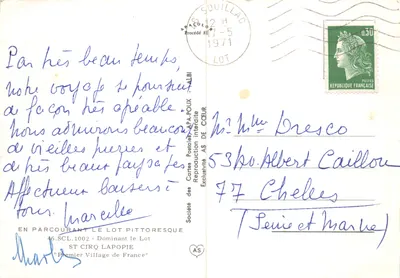 Par très beau temps,
notre voyage se poursuit
de façon très agréable.
Nous admirons beaucoup
de vieilles pierres et
de très beaux paysages
Affectueux baisers à
tous. Marcelle
Charles
EN PARCOURANT LE LOT PITTORESQUE
46 SCL. 1002 - Dominant le Lot
ST CIRQ LAPOPIE
"Premier Village de France"
Société des Cartes Postales APA-POUX - ALBI
Reproduction interdite
Exclusivité AS DE CŒUR
AS
SOUILLAC
12 H
7-5
1971
LOT
0,30
REPUBLIQUE FRANÇAISE
Mr Mme Dresco
53 Av. Albert Caillou
77 Chelles
(Seine et Marne)